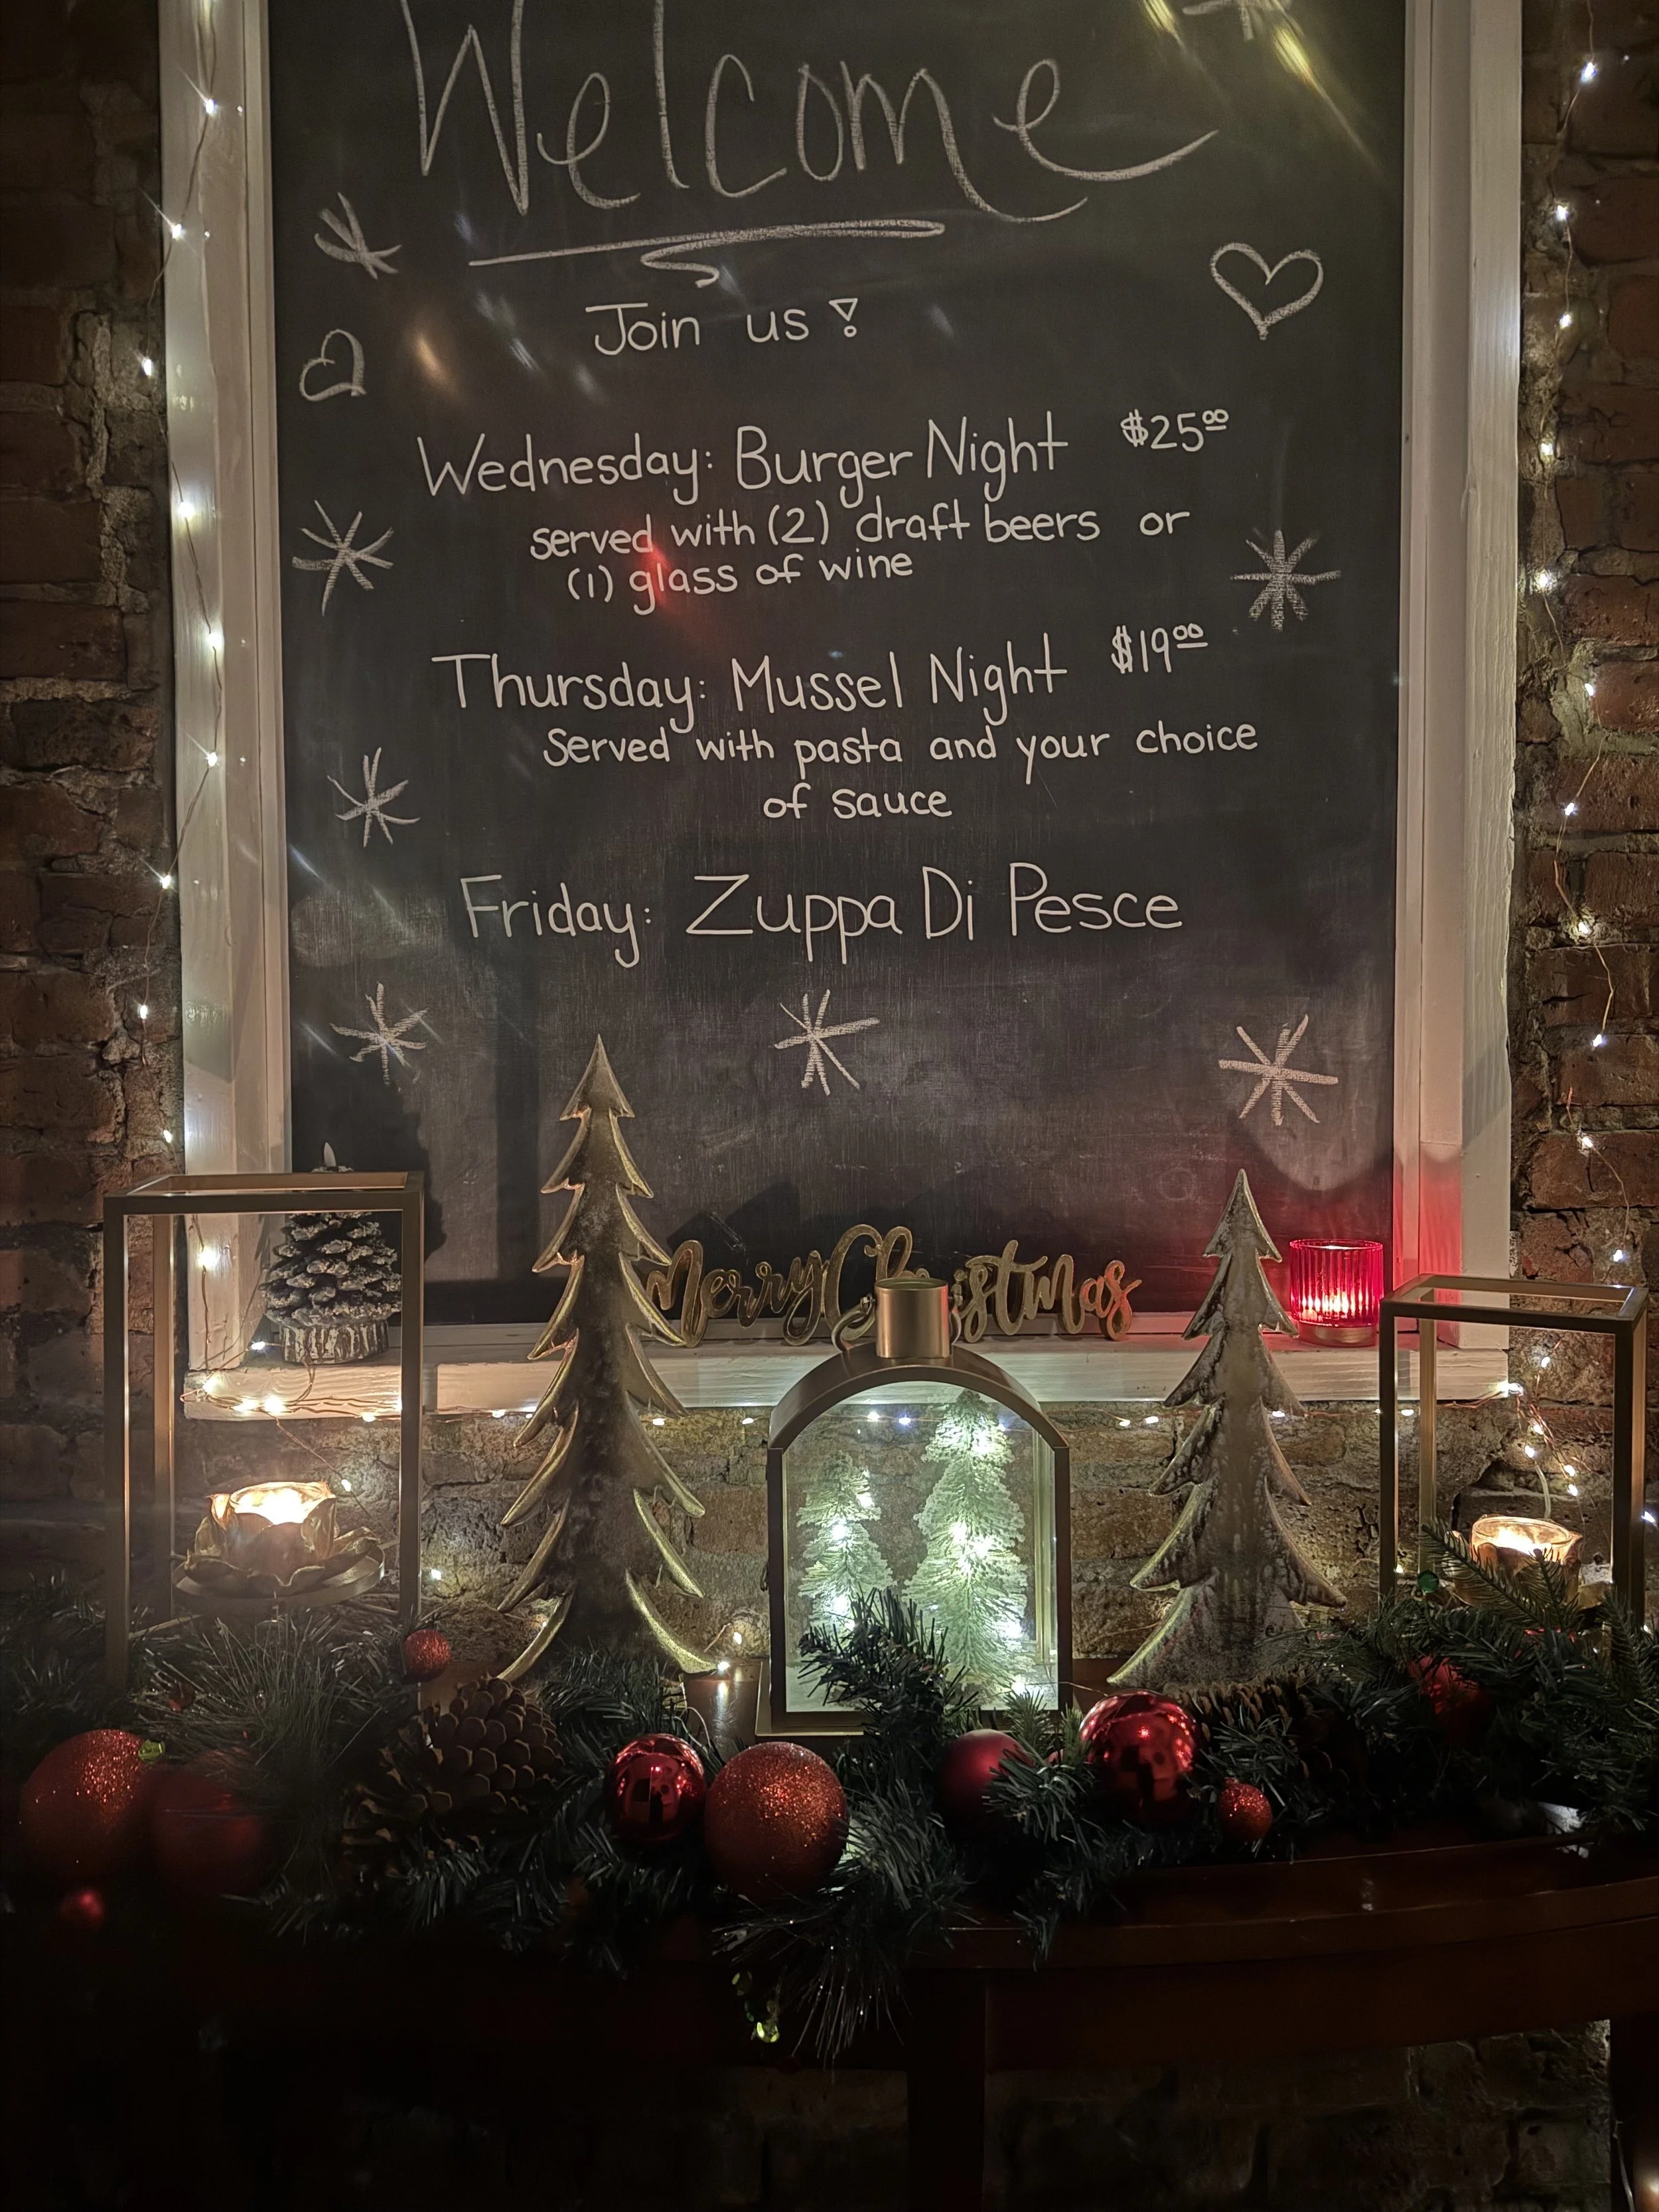 Welcome
Join us!
Wednesday: Burger Night $25.00
served with (2) draft beers or
(1) glass of wine
Thursday: Mussel Night $19.00
Served with pasta and your choice
of sauce
Friday: Zuppa Di Pesce
Merry Christmas